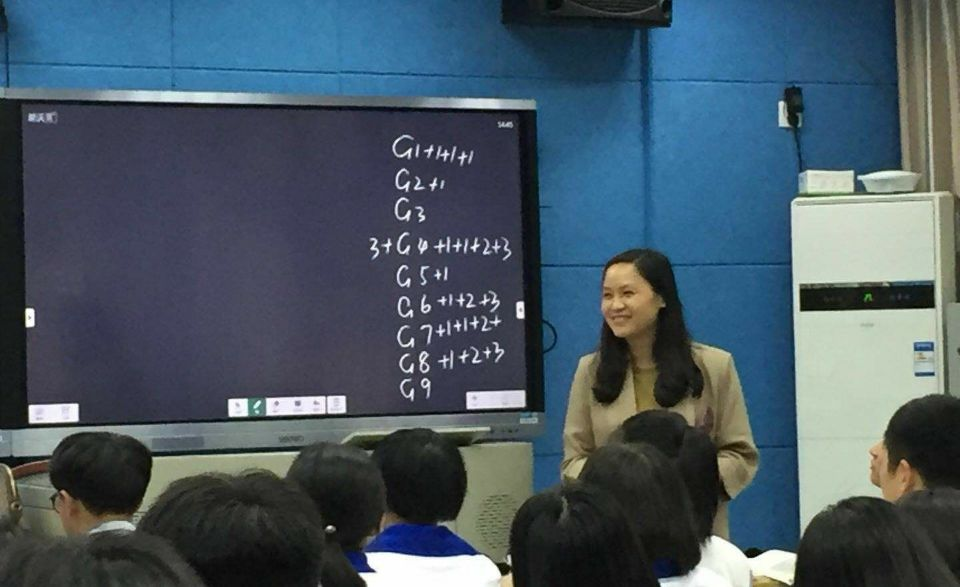 G1+1+1+1
G2+1
G3
3+G4+1+1+2+3
G5+1
G6+1+2+3
G7+1+1+2+
G8+1+2+3
G9